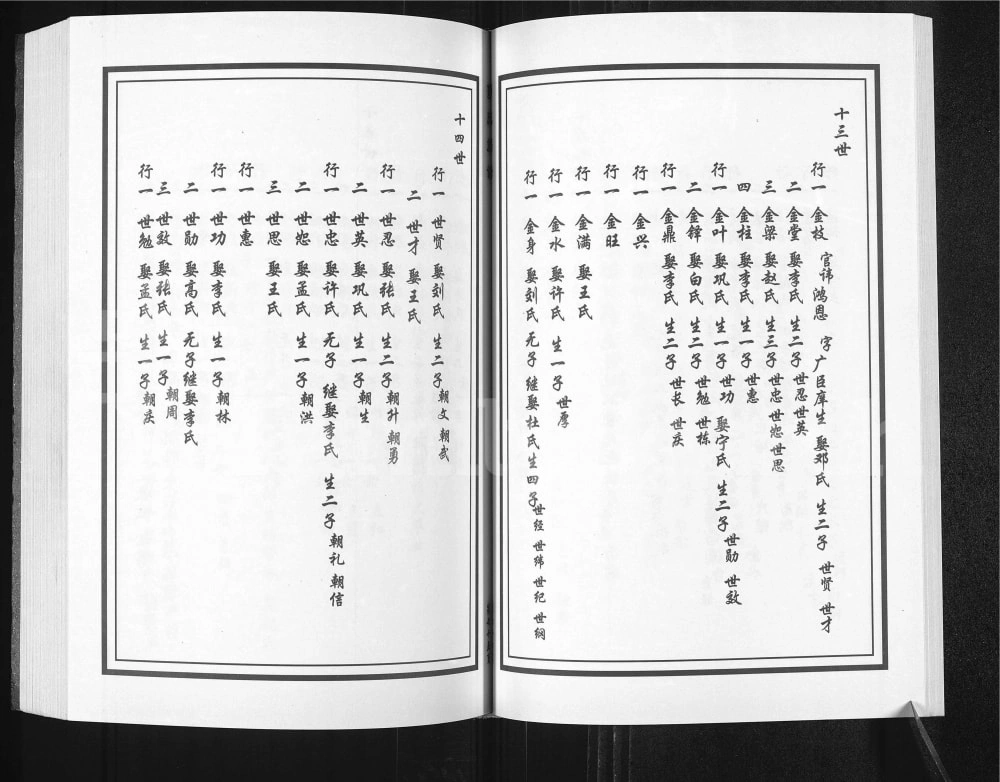 十三世
行一 金枝 官讳鸿恩 字广臣庠生 娶邓氏 生二子 世贤 世才
二 金堂 娶李氏 生二子 世忍 世英
三 金梁 娶赵氏 生三子 世忠 世恕 世思
四 金柱 娶李氏 生一子 世惠
行一 金叶 娶巩氏 生一子 世功 娶宁氏 生二子 世勋 世效
二 金铎 娶白氏 生二子 世勉 世栋
行一 金鼎 娶李氏 生二子 世长 世庆
行一 金兴
行一 金旺
行一 金满 娶王氏
行一 金水 娶许氏 生一子 世厚
行一 金身 娶刘氏 无子 继娶杜氏 生四子 世经 世纬 世纪 世纲
十四世
行一 世贤 娶刘氏 生二子 朝文 朝武
二 世才 娶王氏
行一 世忍 娶张氏 生二子 朝升 朝勇
二 世英 娶巩氏 生一子 朝生
行一 世忠 娶许氏 无子 继娶李氏 生二子 朝礼 朝信
二 世恕 娶孟氏 生一子 朝洪
三 世思 娶王氏
行一 世惠
行一 世功 娶李氏 生一子 朝林
二 世勋 娶高氏 无子 继娶李氏
三 世效 娶张氏 生一子 朝周
行一 世勉 娶孟氏 生一子 朝庆